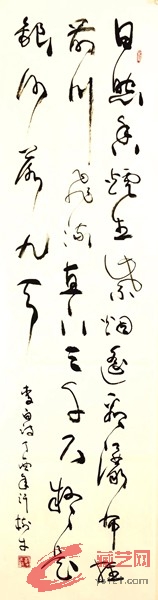 日照香炉生紫烟遥看瀑布挂
前川飞流直下三千尺疑是
银河落九天
李白诗丁酉年许
藏艺网